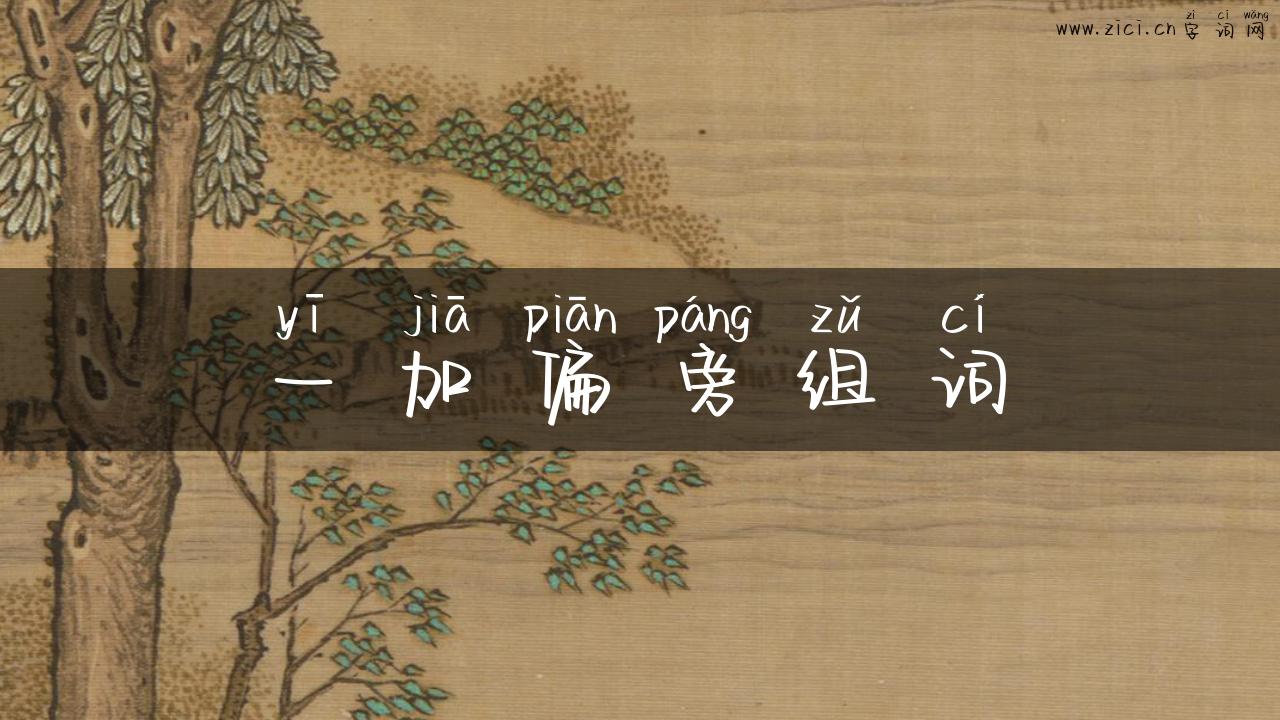 zì cí wǎng
www.zici.cn 字词网
yī jiā piān páng zǔ cí
一加偏旁组词